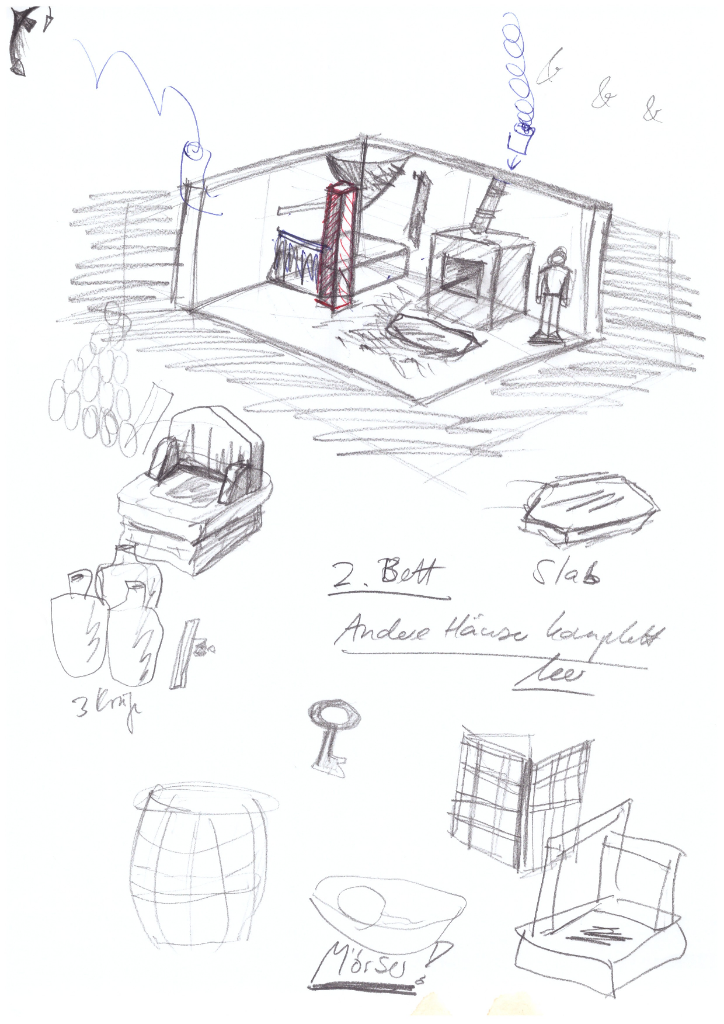 & & &
2. Bett
Slab
Andere Häuser komplett
leer
3 Krüge
Mörser!